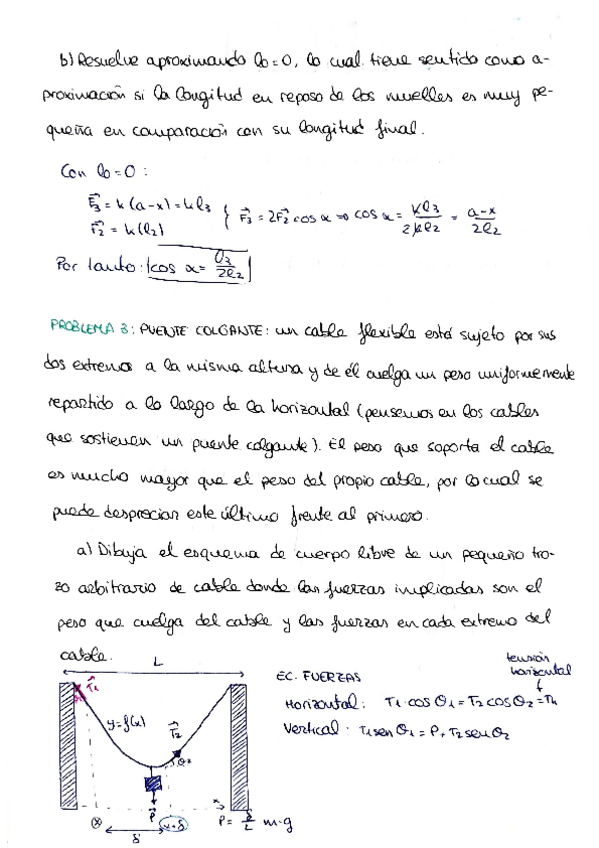 b) Resuelve aproximando l₀=0, lo cual tiene sentido como a-
proximación si la longitud en reposo de los muelles es muy pe-
queña en comparación con su longitud final.
Con l₀=0:
F₃ = k(a-x) = kl₃
F₂ = k(l₂)
{ F₃ = 2F₂ cos α ⇒ cos α = kl₃ / 2kl₂ = a-x / 2l₂
Por tanto: cos α = l₃ / 2l₂
PROBLEMA 3: PUENTE COLGANTE: un cable flexible está sujeto por sus
dos extremos a la misma altura y de él cuelga un peso uniformemente
repartido a lo largo de la horizontal (pensemos en los cables
que sostienen un puente colgante). El peso que soporta el cable
es mucho mayor que el peso del propio cable, por lo cual se
puede despreciar este último frente al primero.
a) Dibuja el esquema de cuerpo libre de un pequeño tro-
zo arbitrario de cable donde las fuerzas implicadas son el
peso que cuelga del cable y las fuerzas en cada extremo del
cable.
L
T₁
y=f(x)
T₂
θ₂
P
x
x+δ
δ
P = δ/L m·g
EC. FUERZAS
tensión
horizontal
Horizontal: T₁ cos θ₁ = T₂ cos θ₂ = Th
Vertical: T₁ sen θ₁ = P + T₂ sen θ₂